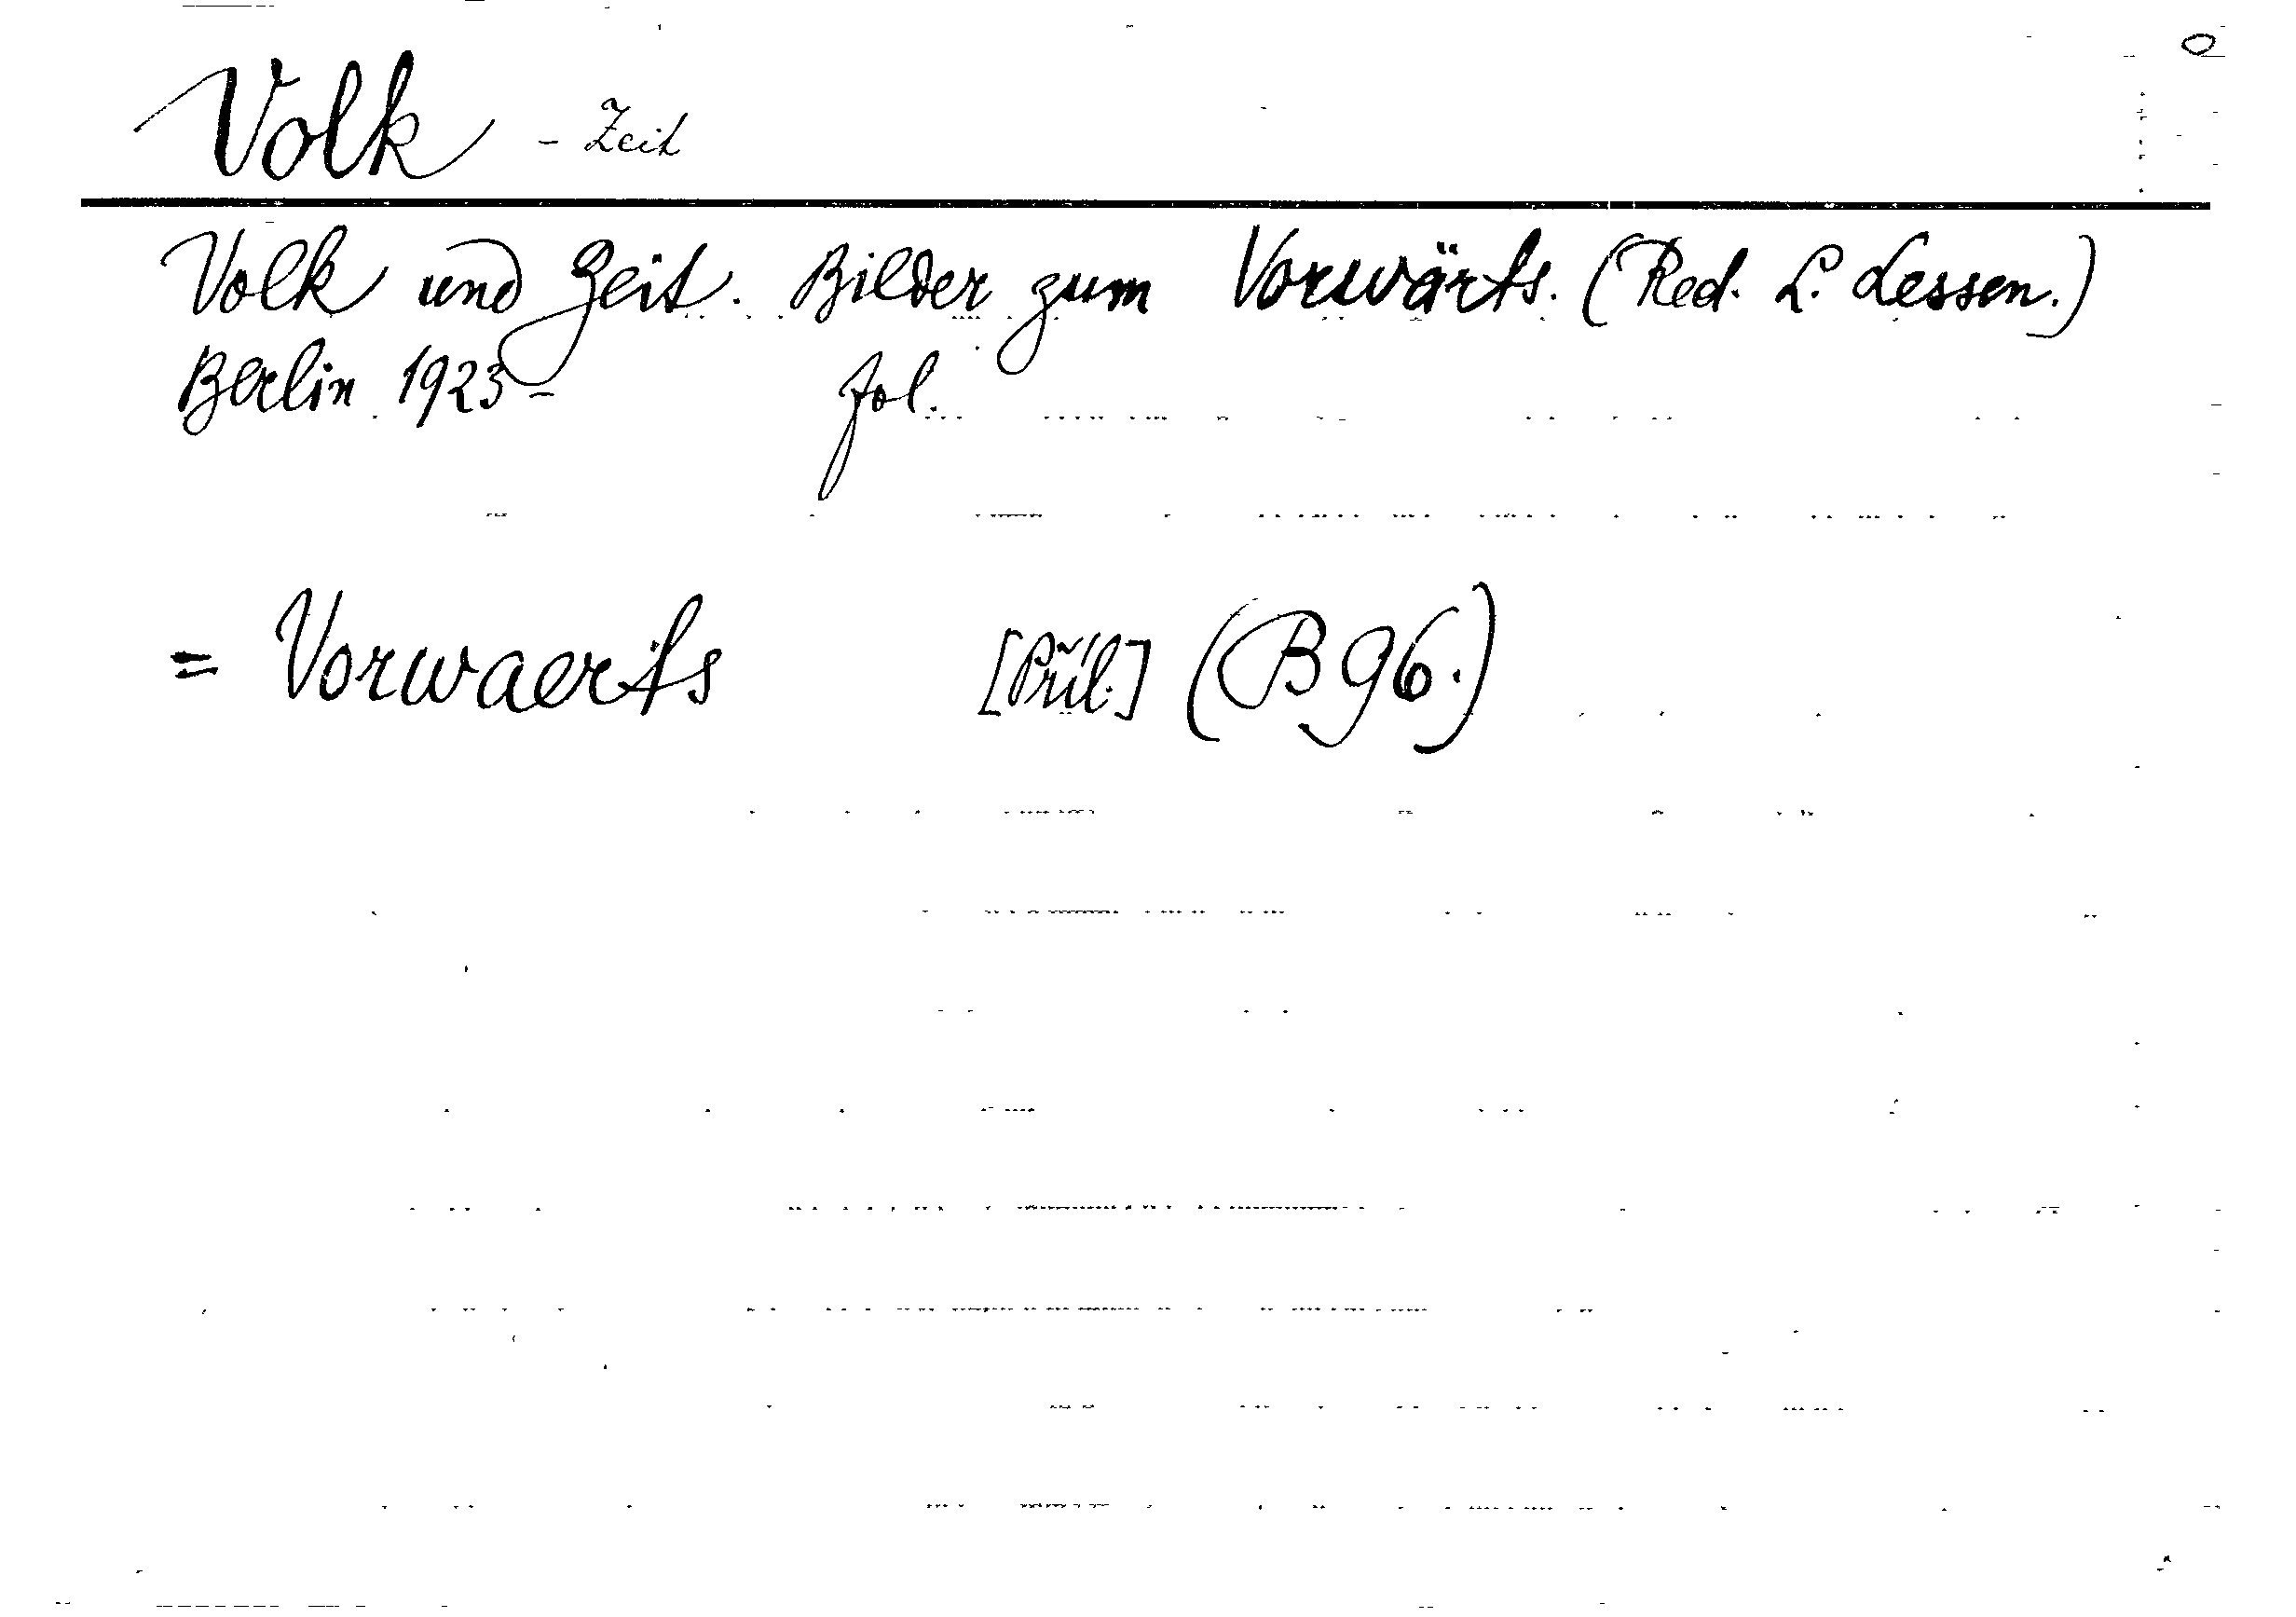 Volk - Zeit
Volk und Zeit. Bilder zum Vorwärts. (Red. L. Lessen.)
Berlin 1923- fol.
= Vorwaerts [Příl.] (B 96.)